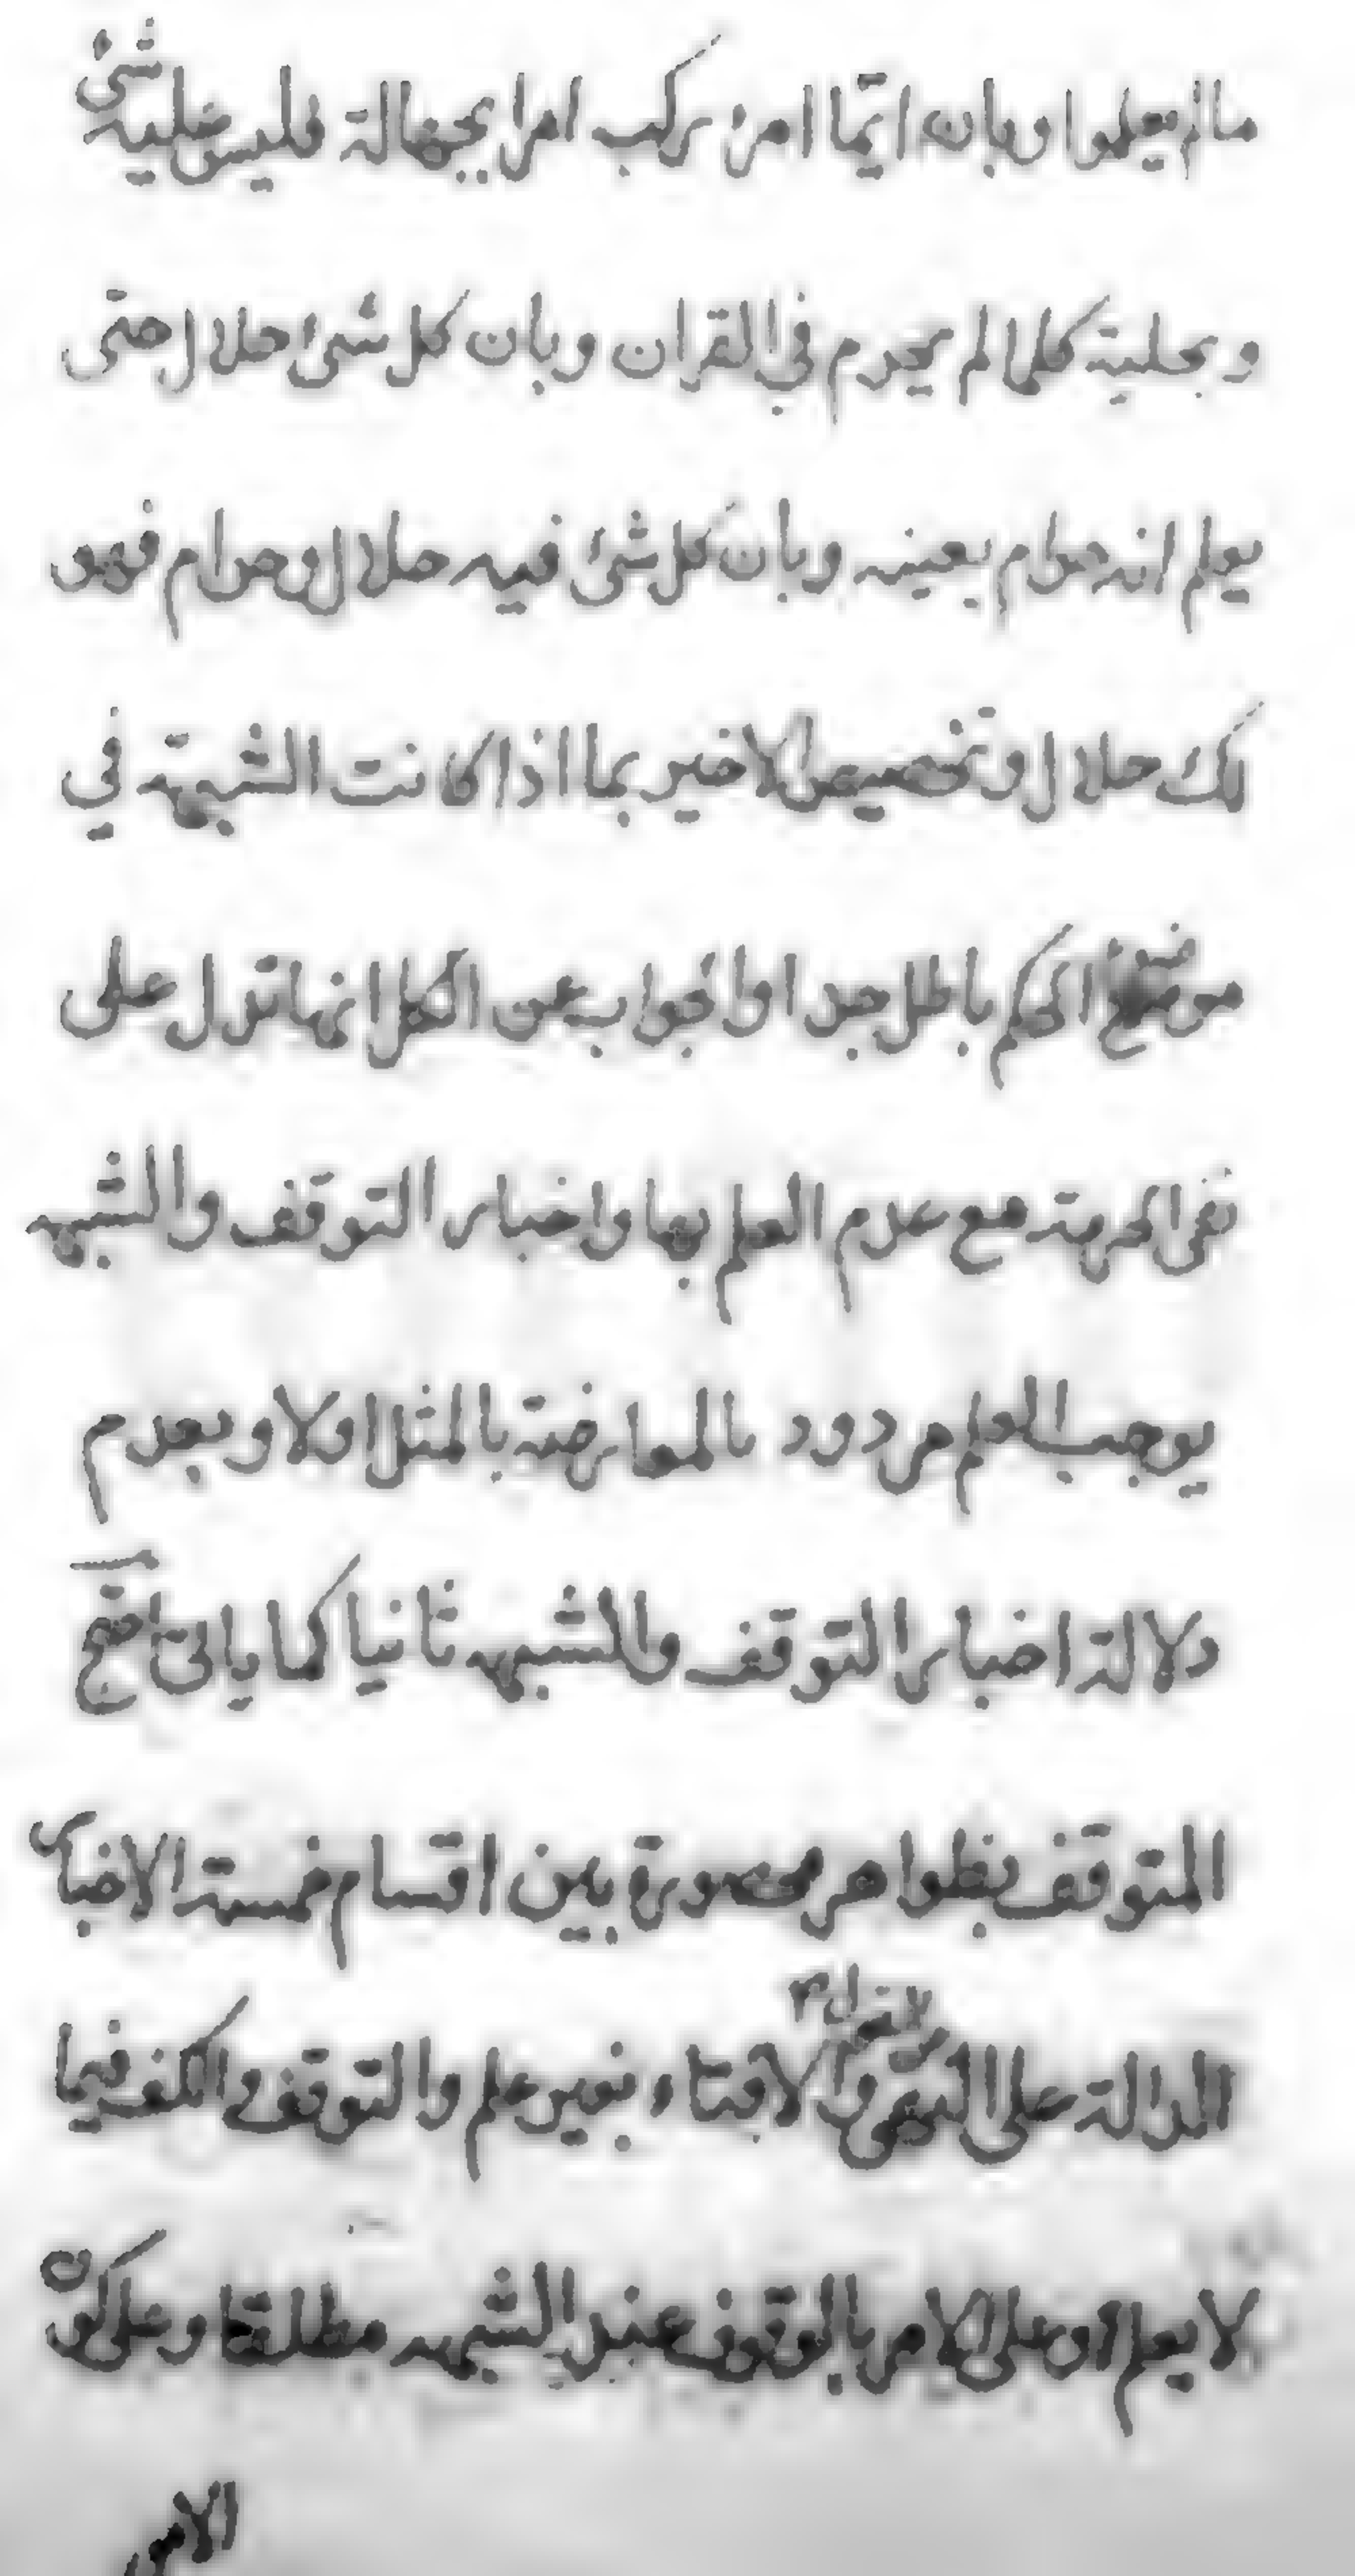 ما لم يعلموا وبان ايّما امرئ ركب امرا بجهالة فليس عليه شئ
وبحلية كلما لم يحرم في القران وبان كل شئ حلال حتى
يعلم انه حرام بعينه وبان كل شئ فيه حلال وحرام فهو
لك حلال وتخصيص الاخير بما اذا كانت الشبهة في
موضوع الحكم باطل جدا والجواب عن الكل انها تدل على
نفى الحرمة مع عدم العلم بها واخبار التوقف والشبهه
يوجب العلم مردود بالمعارضة بالمثل اولا وبعدم
دلالة اخبار التوقف والشبهه ثانيا كما ياتى احتج
المتوقف بظواهر محصورة بين اقسام خمسة الاخبار
الدالة على النهى والافتاء بغير علم والتوقف والكف فيما
لا يعلم او على الامر بالوقوف عند الشبهه مطلقا وعلى كون
الامر